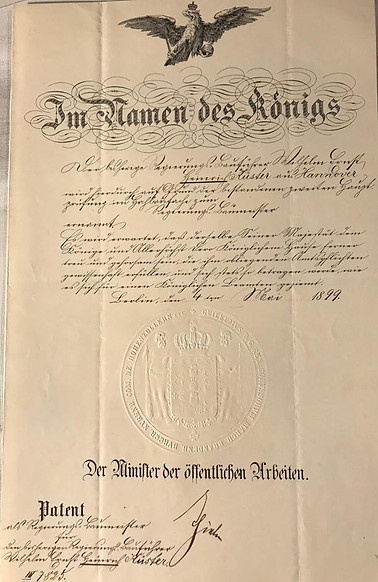 Im Namen des Königs
Der bisherige Regierungs-Bauführer Wilhelm Ernst
Heinrich Küster aus Hannover
wird hierdurch auf Grund der bestandenen zweiten Haupt-
prüfung im Hochbaufache zum
Regierungs-Baumeister
ernannt.
Es wird erwartet, daß derselbe Seiner Majestät dem
Könige und Allerhöchst der Königlichen Hause ferner
treu und gehorsam sein, die ihm obliegenden Amtspflichten
gewissenhaft erfüllen und sich stets so betragen werde, wie
es sich für einen Königlichen Beamten geziemt.
Berlin, den 4ten Mai 1899.
Der Minister der öffentlichen Arbeiten.
Patent
als Regierungs-Baumeister
für
den bisherigen Regierungs-Bauführer
Wilhelm Ernst Heinrich Küster.
III 7825.